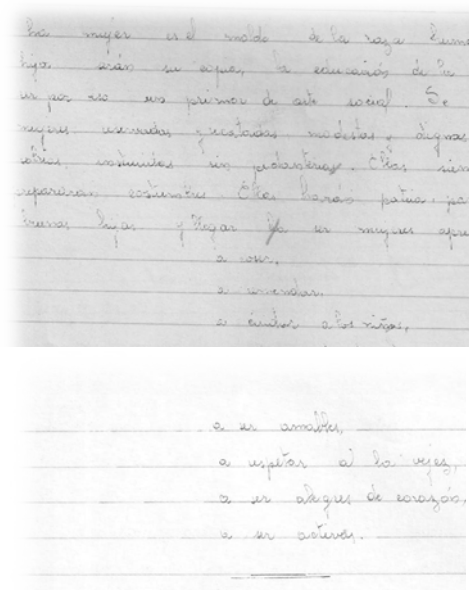 La mujer es el molde de la raza huma
hija serán su copia, la educación de la
ser por eso un primor de arte social. Se
mujeres reservadas y recatadas modestas y dignas
sobrias, instruidas sin pedanterías. Ellas
repararán costumbres. Ellas harán patria,
buenas hijas y Hogar Ya ser mujeres apre
a coser,
a remendar,
a cuidar a los niños,
a ser amables,
a respetar a la vejez,
a ser alegres de corazón,
a ser activas.